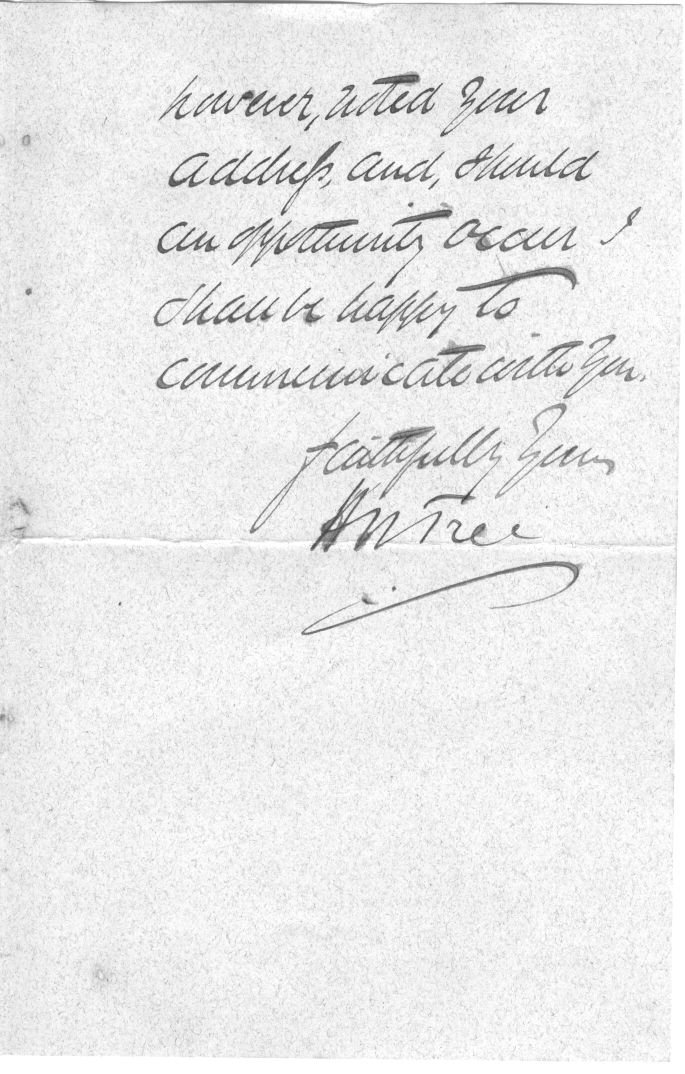 however, noted your
address, and, should
an opportunity occur I
shall be happy to
communicate with you.
faithfully yours
HB Tree